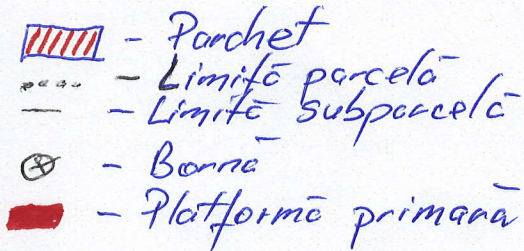 - Parchet
- Limită parcelă
- Limită subparcelă
- Bornă
- Platformă primară